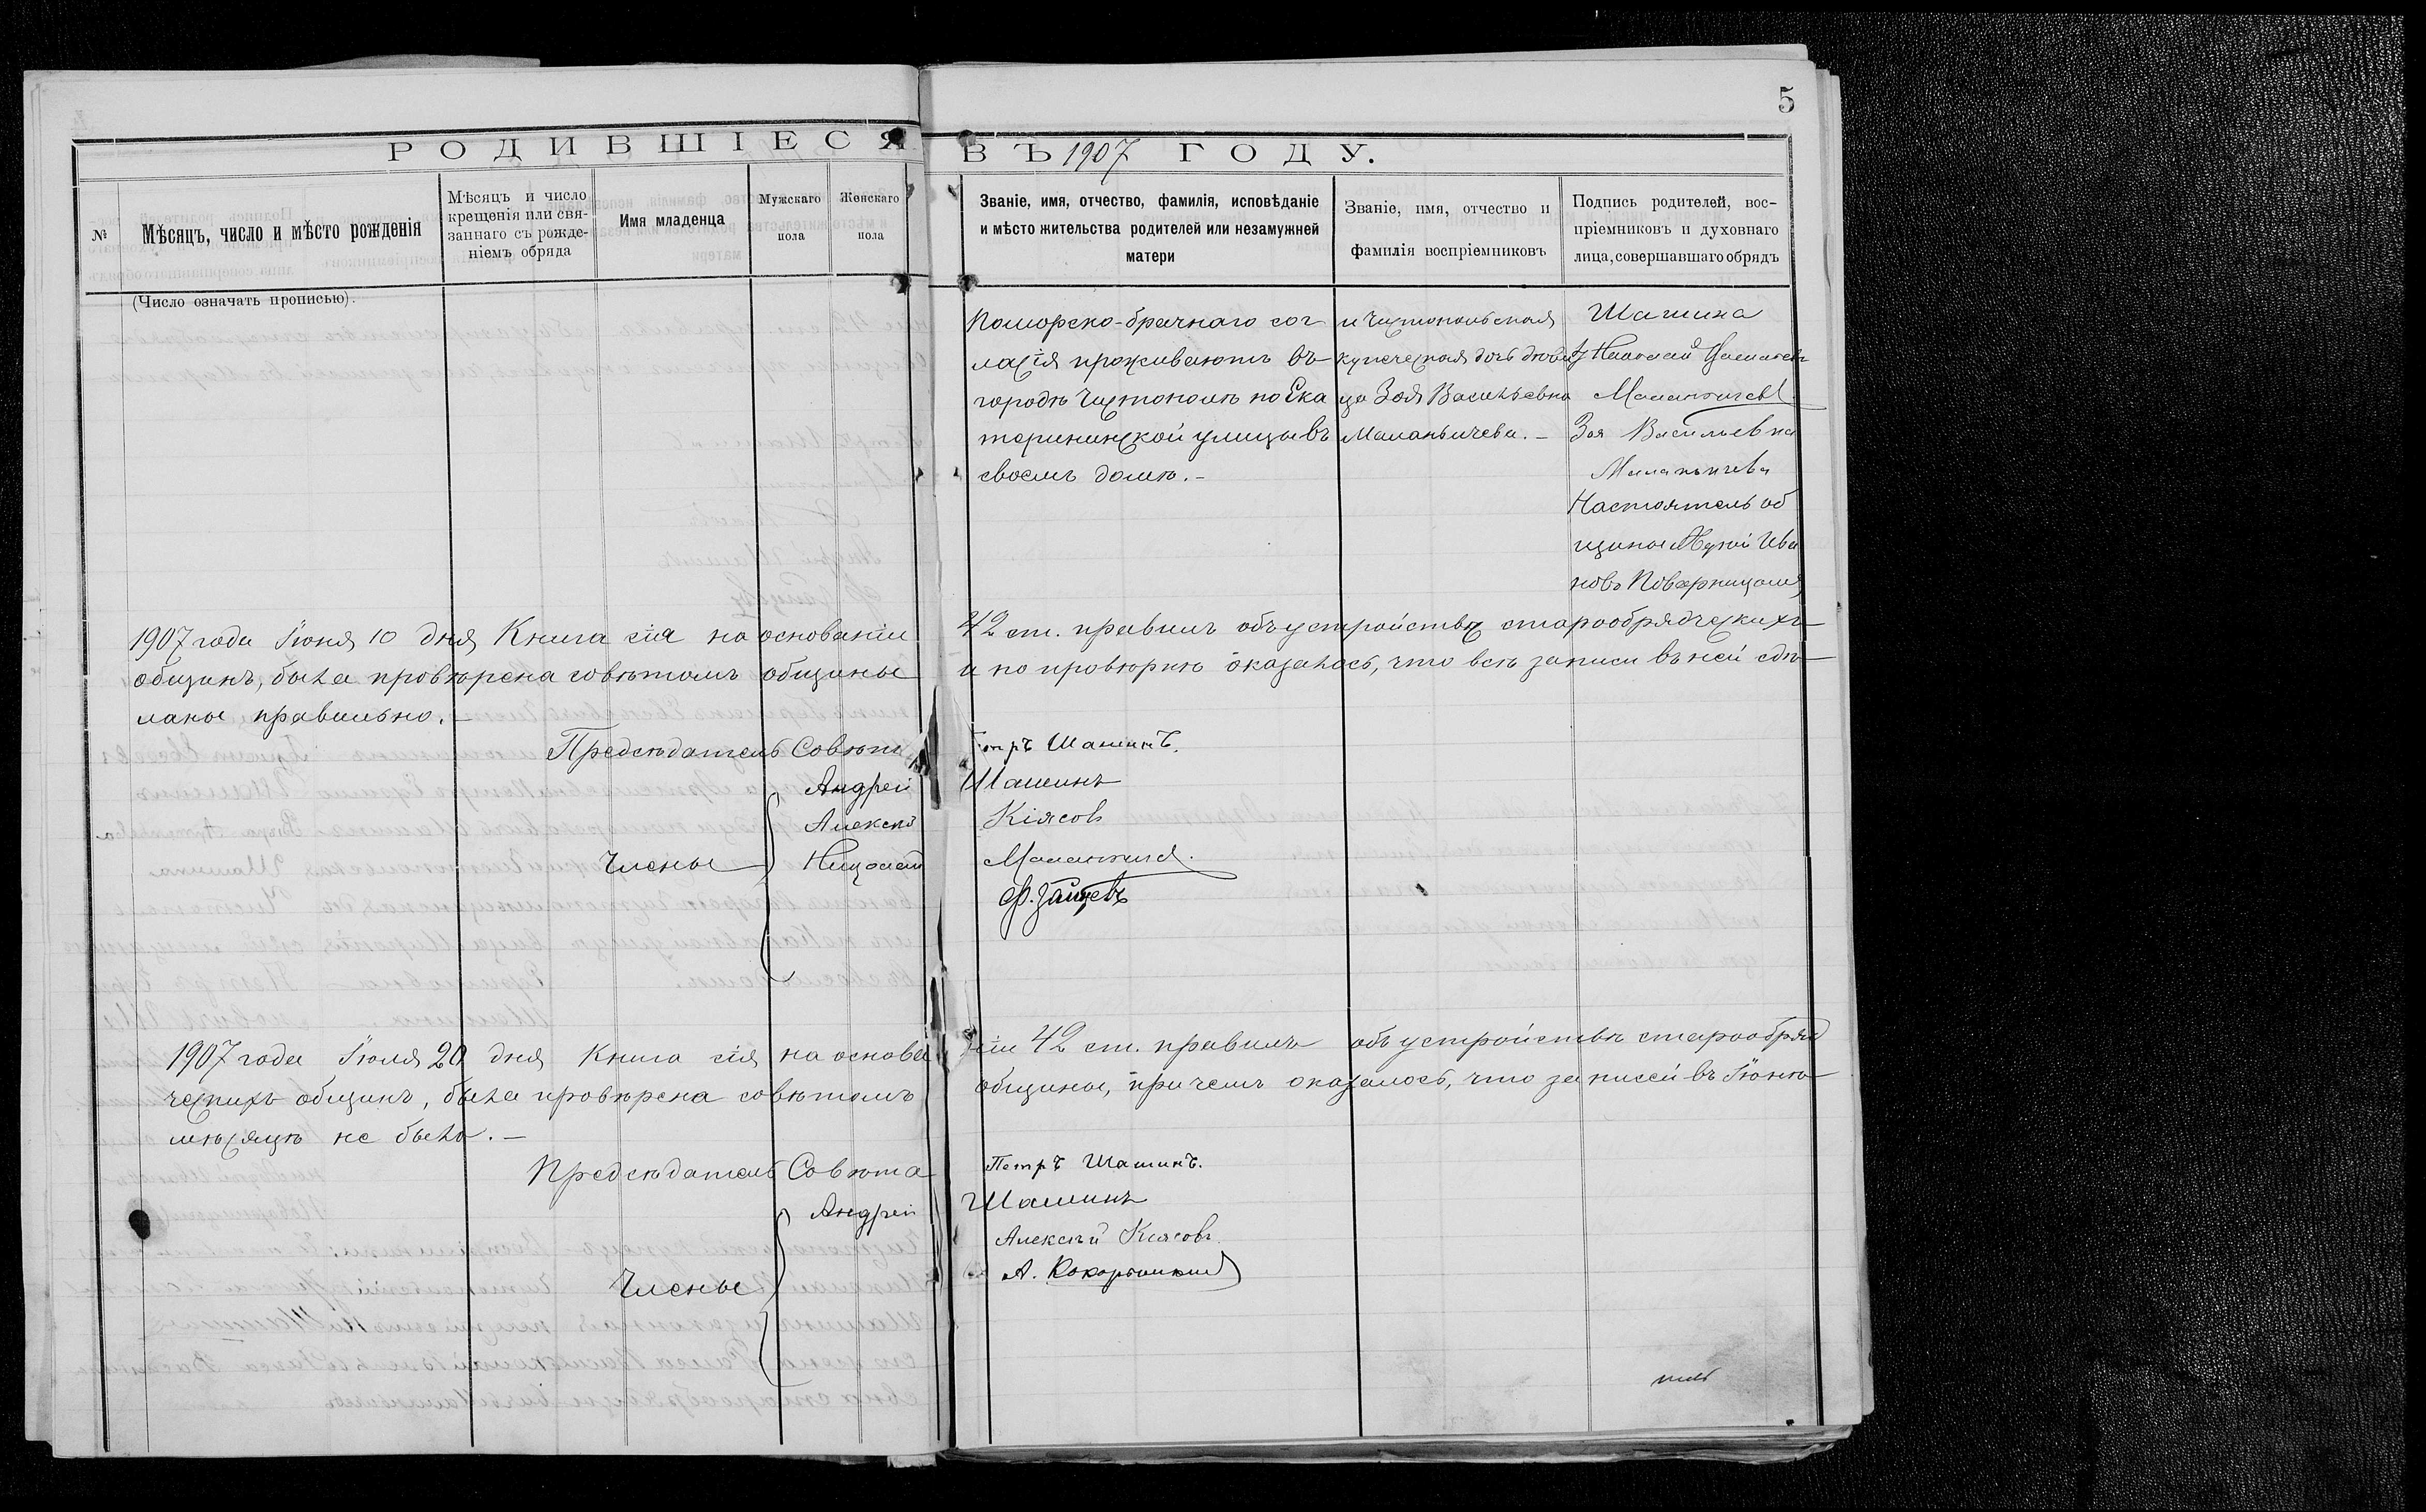 5
РОДИВШІЕСЯ ВЪ 1907 ГОДУ.
№
Мѣсяцъ, число и мѣсто рожденія
Мѣсяцъ и число
крещенія или свя-
заннаго съ рожде-
ніемъ обряда
Имя младенца
Мужскаго
пола
Женскаго
пола
Званіе, имя, отчество, фамилія, исповѣданіе
и мѣсто жительства родителей или незамужней
матери
Званіе, имя, отчество и
фамилія воспріемниковъ
Подпись родителей, вос-
пріемниковъ и духовнаго
лица, совершавшаго обрядъ
(Число означать прописью).
Поморско-брачнаго сог
ласія проживаютъ въ
городѣ Чистополѣ по Ека
терининской улицы въ
своемъ домѣ.-
и Чистопольская
купеческая дочь дѣви
ца Зоя Васильевна
Маланьичева.-
Шашина
Николай
Маланьичевъ
Зоя Васильевна
Маланьичева
Настоятель об
щины Ива
новъ
1907 года Іюня 10 дня Книга сія на основаніи 42 ст. правилъ объ устройствѣ старообрядческихъ
общинъ, была провѣрена совѣтомъ общины и по провѣркѣ оказалось, что всѣ записи въ ней сдѣ-
ланы правильно.-
Предсѣдатель Совѣта Петръ Шашинъ.
Андрей Шашинъ
Алексѣй Кіясовъ
Члены Николай Маланьичевъ.
Ф. Зайцевъ
1907 года Іюля 20 дня Книга сія на основаніи 42 ст. правилъ объ устройствѣ старообряд
ческихъ общинъ, была провѣрена совѣтомъ общины, при чемъ оказалось, что записей въ Іюнѣ
мѣсяцѣ не было.-
Предсѣдатель Совѣта Петръ Шашинъ.
Андрей Шашинъ
Алексѣй Кіясовъ.
Члены А.